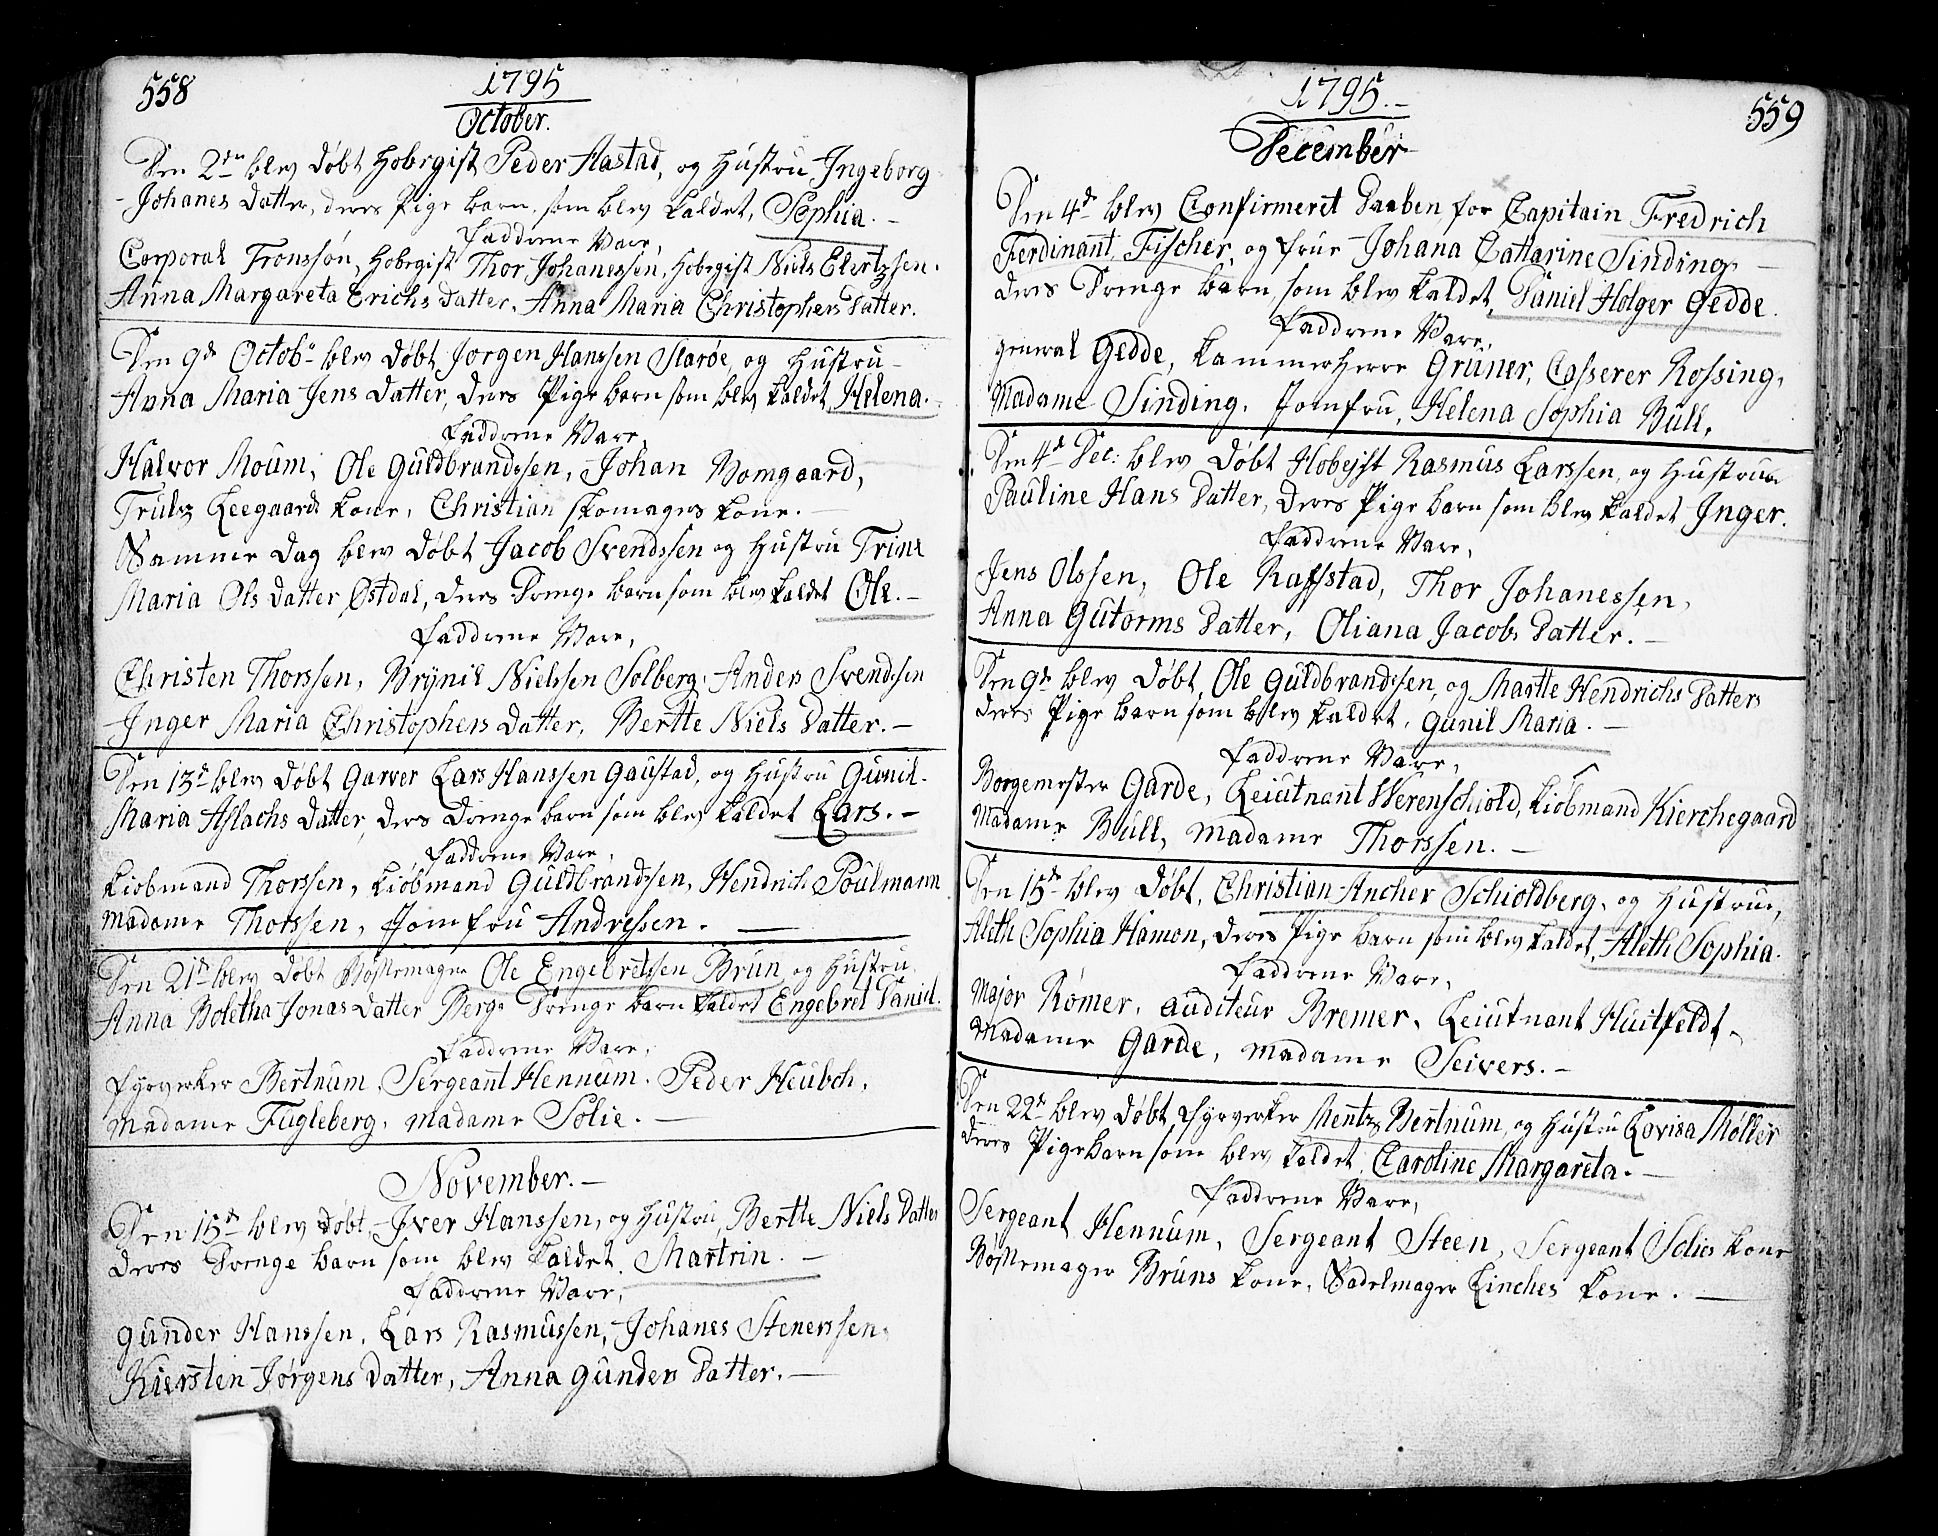 558
1795
October.
Den 2den blev døbt Hobrgist Peder Aastad, og Hustru Ingeborg
Johanes Datter, deres Pige barn som blev kaldet, Sophia. –
Faddrene Vare,
Corporal Tronssøn, Hobrgist Thor Johanessen, Hobrgist Niels Elertzsen.
Anna Margareta Erichs Datter. Anna Maria Christophers Datter.
Den 9de Octobr blev døbt Jørgen Hanssen Slarøe, og Hustru
Anna Maria Jens Datter, Deres Pige barn som blev kaldet Helena. –
Faddrene Vare,
Halvor Moum, Ole Guldbrandssen, Johan Bomgaard,
Trulz Leegaards kone, Christian Skomagers kone. –
Samme Dag blev døbt Jacob Svendssen og Hustru Trine
Maria Ols Datter Østdal, Deres Drenge barn som blev kaldet Ole. –
Faddrene Vare,
Christen Thorssen, Brynil Nielssen Solberg, Anders Svendssen
Inger Maria Christophers Datter, Bertte Niels Datter. –
Den 13de blev døbt Garver Lars Hanssen Gaustad, og Hustru Gunil
Maria Aslachs Datter, Ders Drenge barn som blev kaldet Lars. –
Faddrene Vare,
Kiøbmand Thorssen, Kiøbmand Guldbrandssen, Hendrich Poulmann
Madame Thorssen, Jomfru Andressen. –
Den 21de blev døbt Bøssemager Ole Engelretssen Brun og Hustru
Anna Boletha Jonas Datter Berge Drenge barn kaldet Engebret Daniel.
Faddrene Vare,
Fyrverker Bertnum, Sergeant Hennum. Peder Heubch,
Madame Fugleberg, Madame Solie. –
November. –
Den 15de blev døbt, Iver Hanssen, og Hustru Bertte Niels Datter
Deres Drenge barn som blev kaldet, Martrin. –
Faddrene Vare,
Gunder Hanssen, Lars Rasmussen, Johanes Stenerssen,
Kiersten Jørgens Datter, Anna Gunders Datter. –
559
1795. –
December
Den 4de blev Confirmeret Daaben for Capitain Fredrich
Ferdinant Fischer, og frue Johana Cattarine Sinding,
deres Drenge barn som blev kaldet, Daniel Holger Gedde.
Faddrene Vare,
General Gedde, Kammerherre Grüner, Casserer Rossing,
Madame Sinding, Jomfru, Helena Sophia Bull,
Den 4de Dec: blev Døbt Hobejst Rasmus Larssen, og Hustrue
Pauline Hans Datter, Deres Pige barn som blev kaldet Inger.
Faddrene Vare,
Jens Olssen, Ole Raffstad, Thor Johanessen,
Anna Gutorms Datter, Oliana Jacobs Datter. –
Den 9de blev Døbt, Ole Guldbrandssen, og Martte Hendrichs Datters
deres Pige barn som blev kaldet, Gunil Maria. –
Faddrene Vare,
Borgemester Garde, Leiutnant Werenschiold, Kiøbmand Kierchegaard
Madame Bull, Madame Thorssen. –
Den 15de blev Døbt, Christian Ancher Schioldberg, og Hustrue,
Aleth Sophia Hamon, deres Pige barn som blev kaldet, Aleth Sophia.
Faddrene Vare,
Major Rømer, Auditeur Bremer, Leiutnant Huitfeldt,
Madame Garde, Madame Seivers. –
Den 22de blev Døbt, Fyrverker Mentz Bertnum, og Hustru Lovisa Møller
deres Pigebarn som blev kaldet, Caroline Margareta. –
Faddrene Vare,
Sergeant Hennum, Sergeant Steen, Sergeant Solies kone
Bøssemager Bruns kone, Sadelmager Linches kone. –